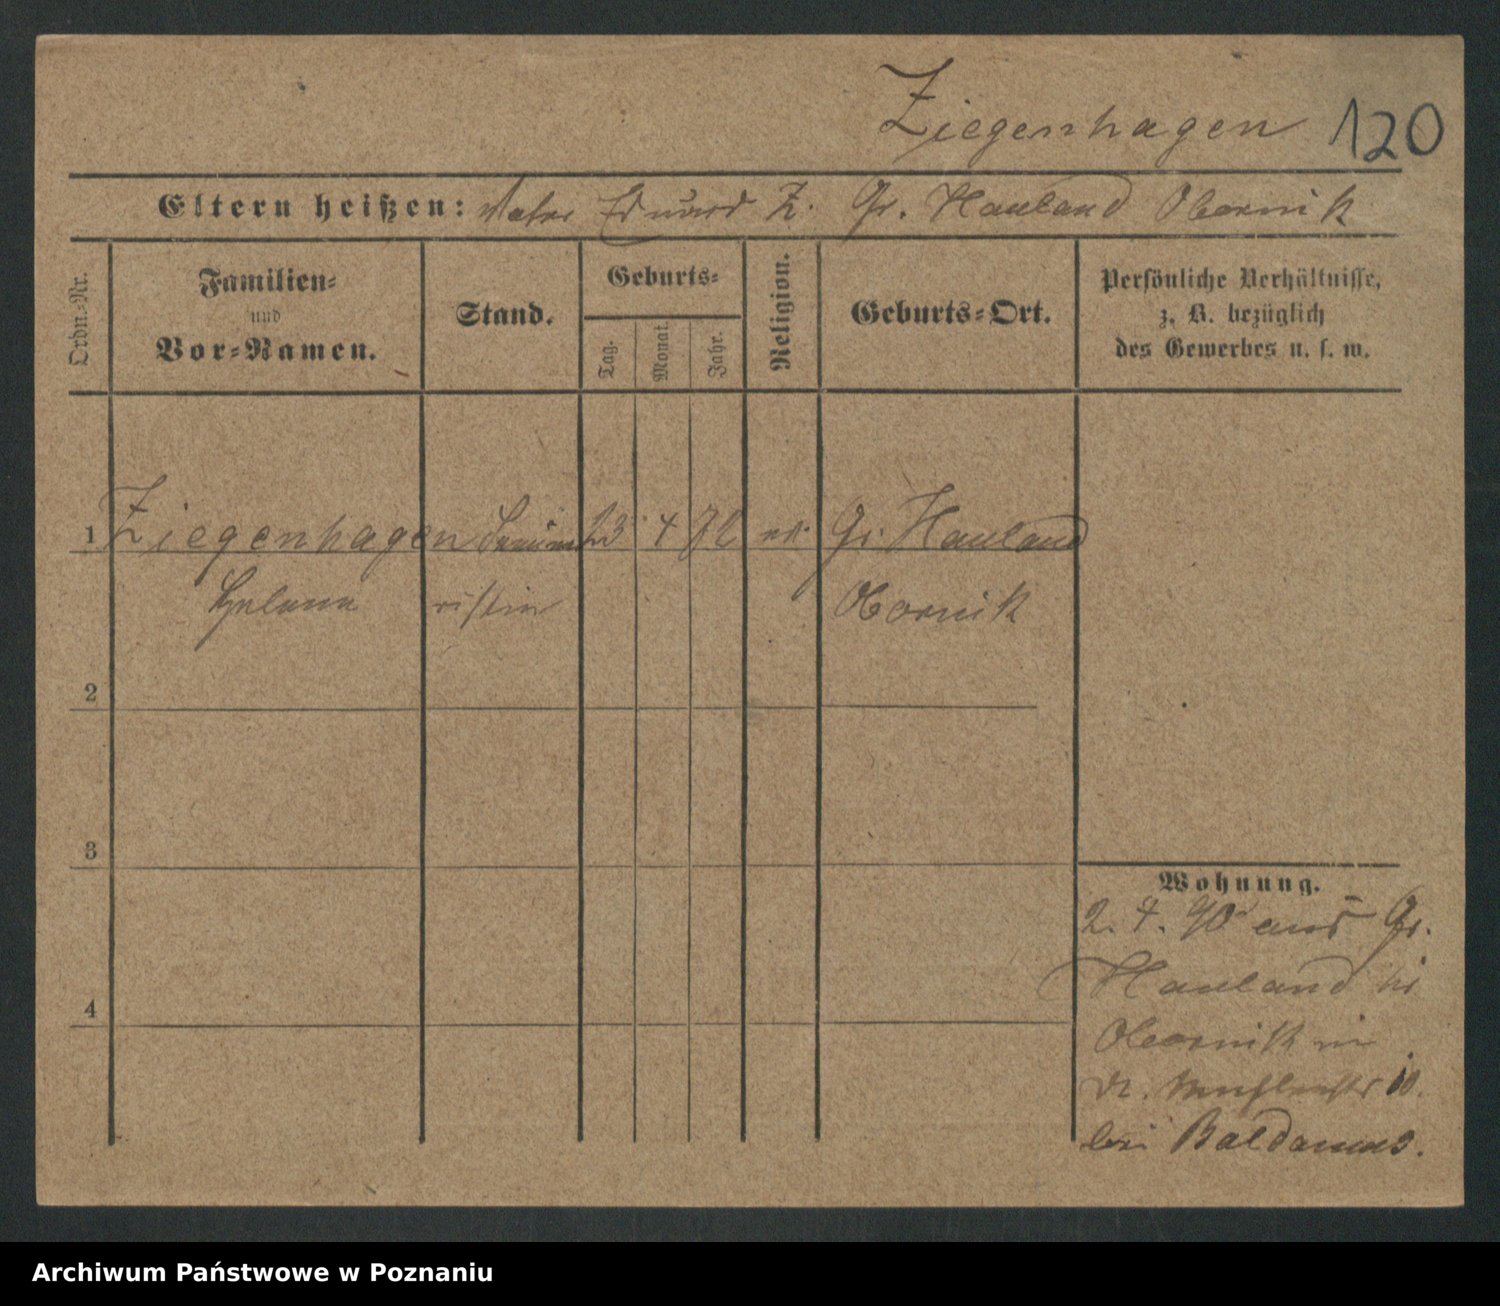 Ziegenhagen 120
Eltern heißen: Vater Eduard Z. Gr. Hauland Obornik
Ordn.-Nr.
Familien-
und
Vor-Namen.
Stand.
Geburts-
Tag.
Monat.
Jahr.
Religion.
Geburts-Ort.
Persönliche Verhältnisse,
z. B. bezüglich
des Gewerbes u. s. w.
1 Ziegenhagen 23 4 72 ev. Gr. Hauland
Helene ristin Obornik
2
3
4
Wohnung.
2. 4. 90 aus Gr.
Hauland
Obornik in
bei Baldamus.
Archiwum Państwowe w Poznaniu